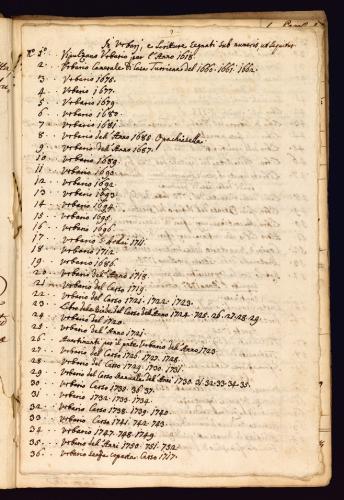 In Urbarj, e Scritture Segnati Sub numeris, ut Sequitur
N° 1°. Urbario per l'Anno 1618.
2. Urbario Generale di Casa del 1660. 1661. 1662.
3. Urbario 1676.
4. Urbario 1677.
5. Urbario 1679.
6. Urbario 1680.
7. Urbario 1681.
8. Urbario del Anno 1688.
9. Urbario del Anno 1687.
10. Urbario 1689.
11. Urbario 1690.
12. Urbario 1692.
13. Urbario 1693.
14. Urbario 1694.
15. Urbario 1695.
16. Urbario 1696.
17. Urbario 1711.
18. Urbario 1712.
19. Urbario 1686.
20. Urbario del Anno 1718.
21. Urbario del Corso 1719.
22. Urbario del Corso 1721. 1722. 1723.
23. Libro del Corso del Anno 1724. 725. 26. 27. 28. 29.
24. Urbario del 1720.
25. Urbario del Anno 1721.
26. per il Urbario del Anno 1723.
27. Urbario del Corso 1726. 1727. 1728.
28. Urbario del Corso 1729. 1730. 1731.
29. Urbario del Corso del Anni 1730. 31. 32. 33. 34. 35.
30. Urbario Corso 1735. 36. 37.
31. Urbario 1732. 1733. 1734.
32. Urbario Corso 1738. 1739. 1740.
33. Urbario Corso 1741. 742. 743.
34. Urbario 1747. 748. 1749.
35. Urbario del Anni 1750. 751. 752.
36. Urbario senza Corso 1717.